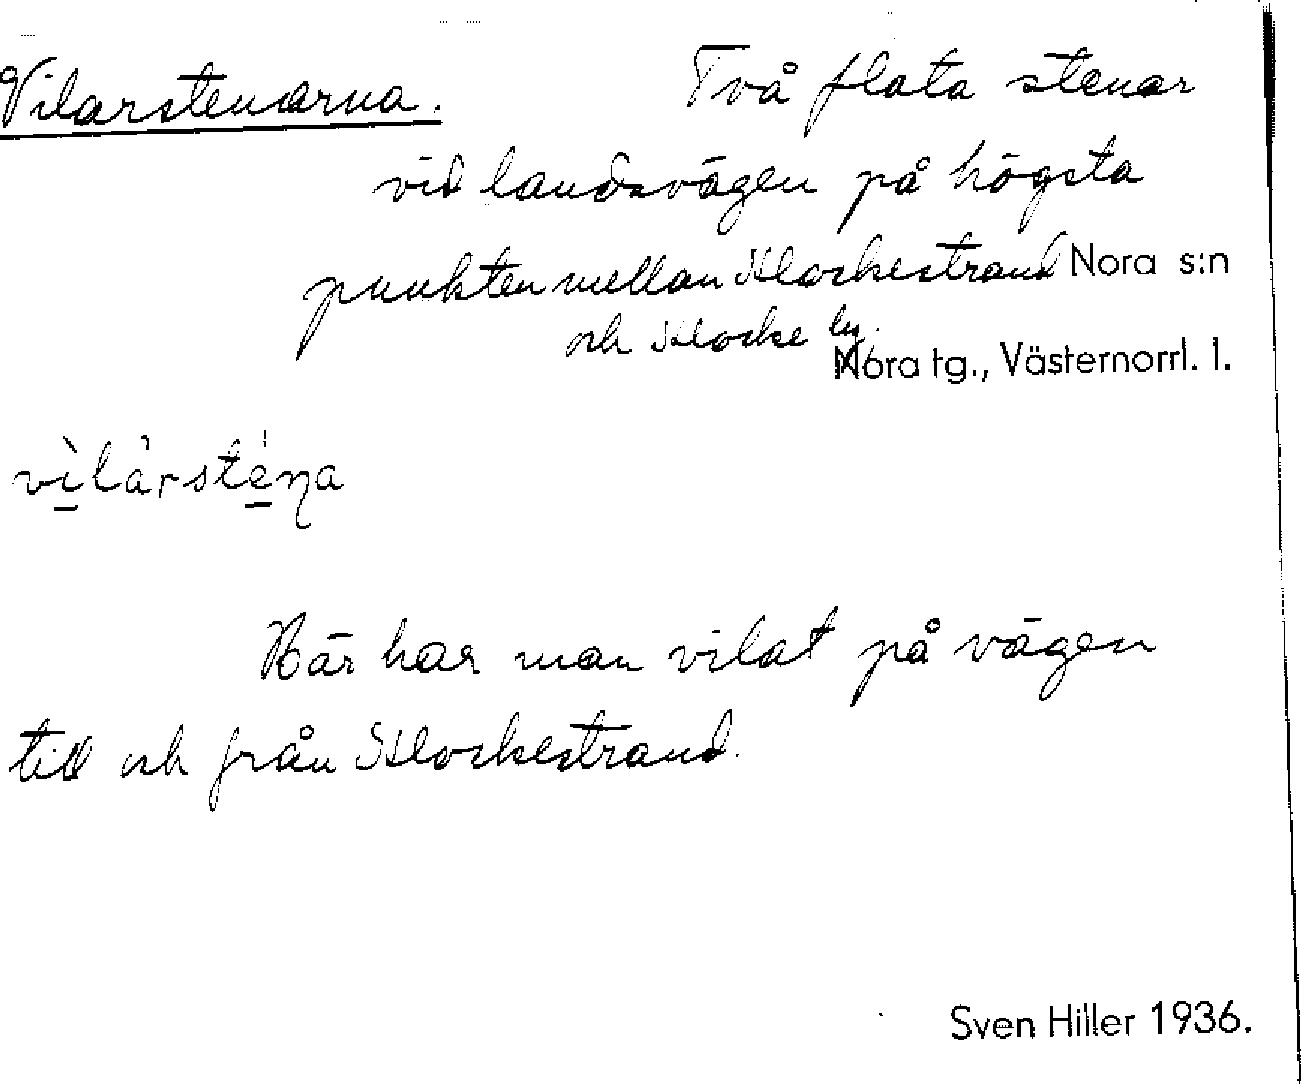 Vilarstenarna. Två flata stenar
vid landsvägen på högsta
punkten mellan Klockestrand Nora s:n
och Klocke by.
Nora tg., Västernorrl. l.
vìlàrsténa
Här har man vilat på vägen
till och från Klockestrand.
Sven Hiller 1936.